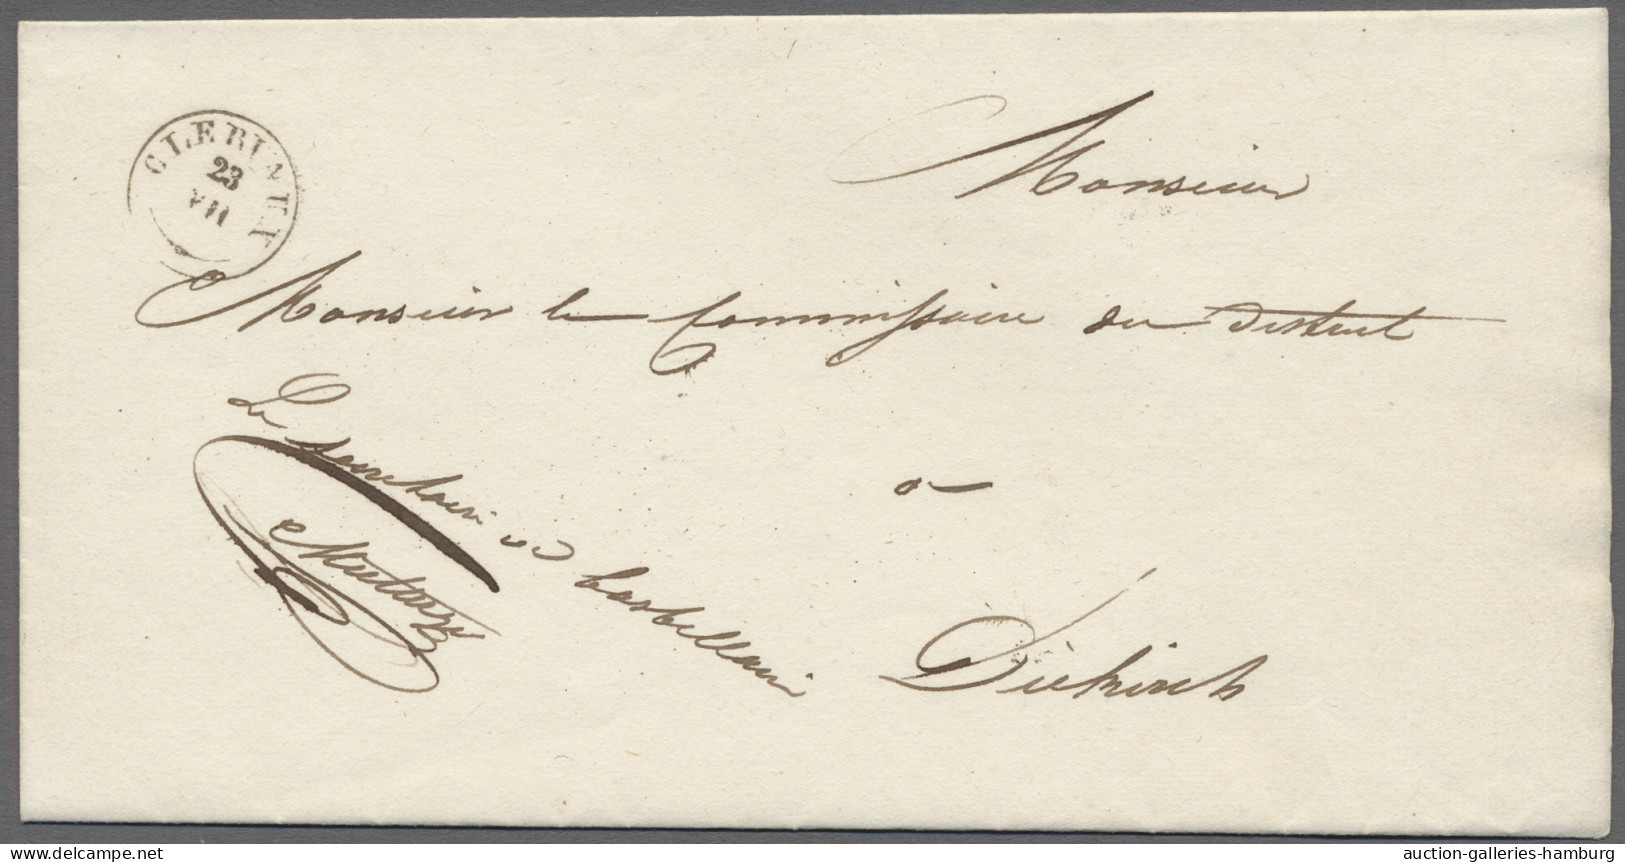 CLERVAUX
23
VII
Monsieur
Monsieur le Commissaire du District
Le Secretaire de
a
Diekirch
www.delcampe.net
auction-galleries-hamburg